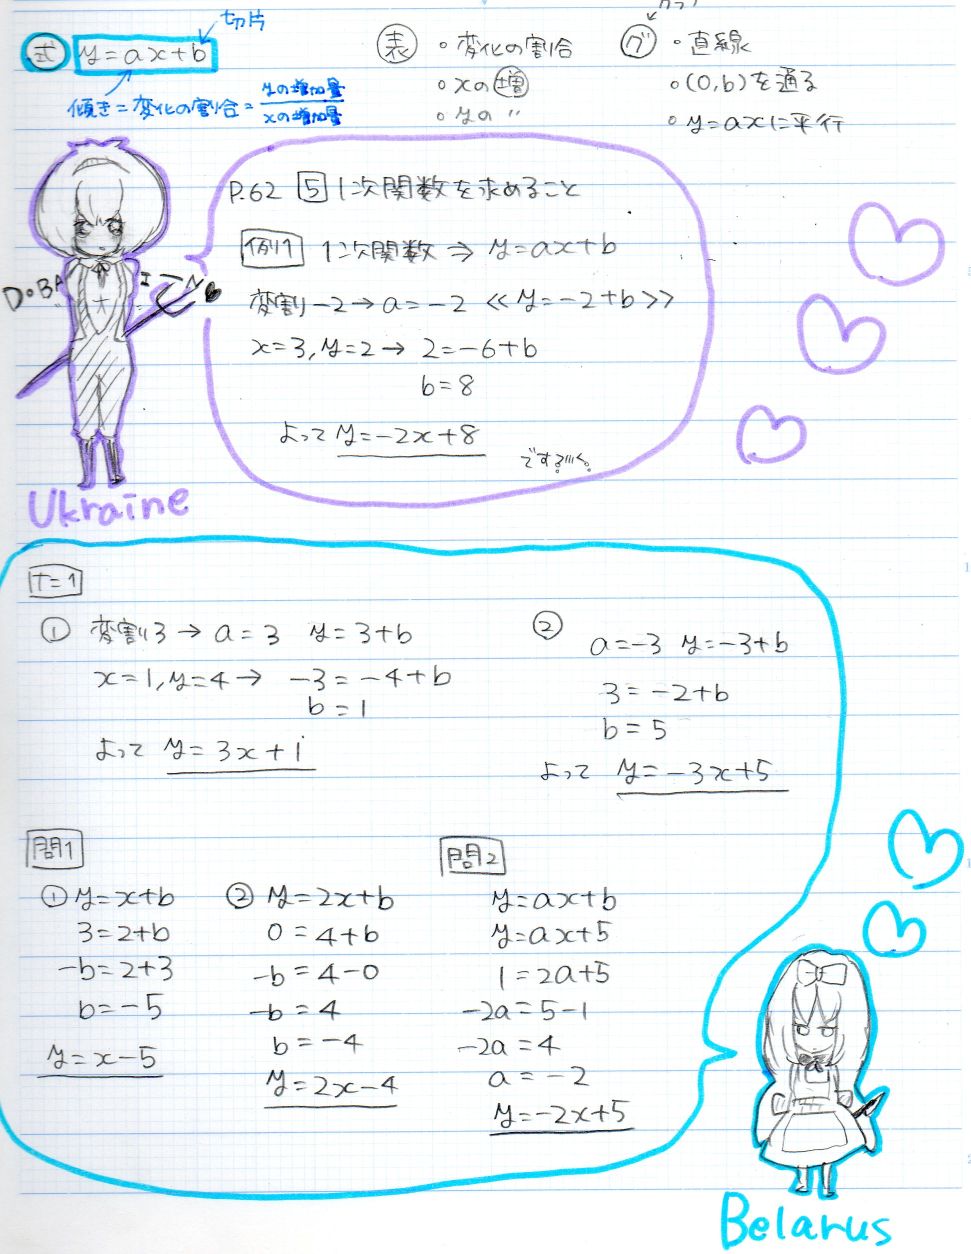 グラフ
切片
式 y=ax+b
傾き=変化の割合=yの増加量/xの増加量
表 ・変化の割合
・xの増
・yの〃
グ ・直線
・(0,b)を通る
・y=axに平行
P.62 5 1次関数を求めること
例1 1次関数 ⇒ y=ax+b
変割-2→a=-2 《y=-2+b》
x=3,y=2→ 2=-6+b
b=8
よって y=-2x+8
です
Ukraine
た=1
① 変割3→a=3 y=3+b
x=1,y=4→ -3=-4+b
b=1
よって y=3x+1
②
a=-3 y=-3+b
3=-2+b
b=5
よって y=-3x+5
問1
① y=x+b
3=2+b
-b=2+3
b=-5
y=x-5
② y=2x+b
0=4+b
-b=4-0
-b=4
b=-4
y=2x-4
問2
y=ax+b
y=ax+5
1=2a+5
-2a=5-1
-2a=4
a=-2
y=-2x+5
Belarus